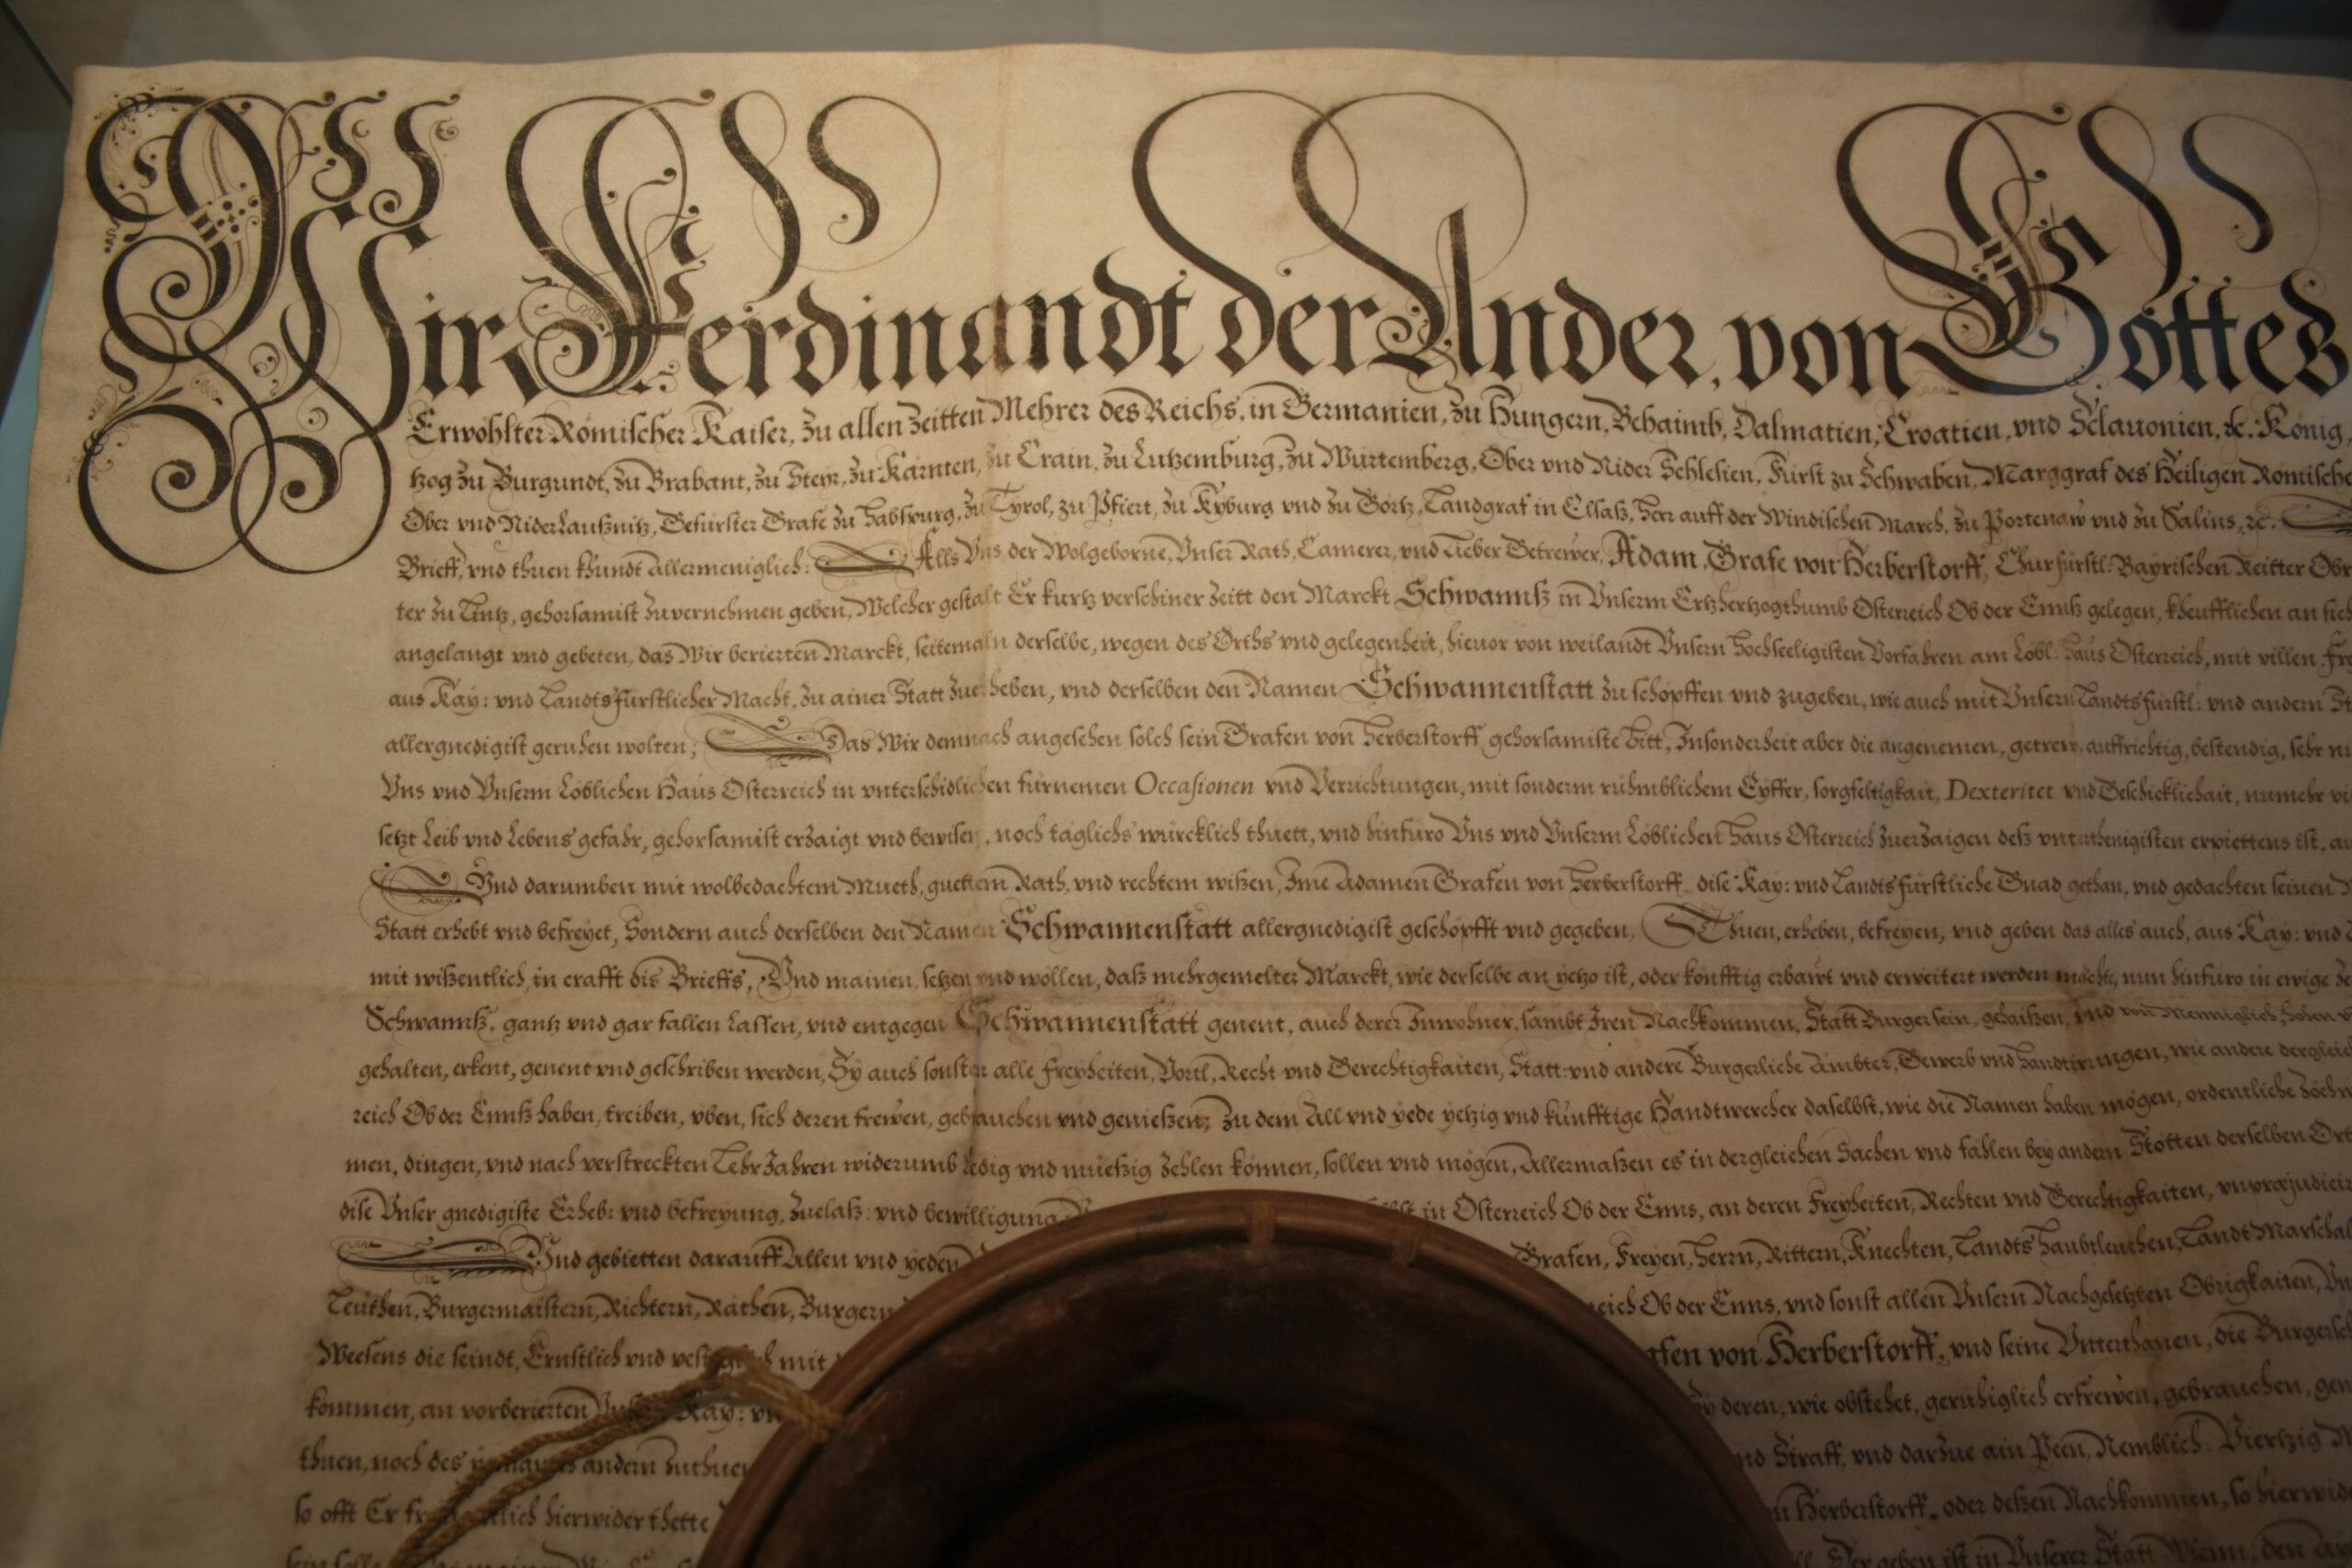 Wir Ferdinandt der Ander, von Gottes
Erwöhlter Römischer Kaiser, zu allen Zeitten Mehrer des Reichs, in Germanien, zu Hungern, Behaimb, Dalmatien, Croatien, vnd Sclauonien, ꝛc. König,
tzog zu Burgundt, zu Brabant, zu Steyr, zu Kärnten, zu Crain, zu Lutzemburg, zu Würtemberg, Ober vnd Nider Schlesien, Fürst zu Schwaben, Marggraf des Heiligen Römische
Ober vnd Nider Laußnitz, Gefürster Grafe zu Habspurg, zu Tyrol, zu Pfiert, zu Kyburg vnd zu Görtz, Landgraf in Elsaß, Herr auff der Windischen March, zu Portenaw vnd zu Salins, ꝛc.
Brieff, vnd thuen khundt Allermeniglich: Alls Vns der Wolgeborne, Vnser Rath, Camerer, vnd Lieber Getrewer, Adam, Grafe von Herberstorff, Churfürstl: Bayrischen Reitter Obr
ter zu Lintz, gehorsamist zuvernehmen geben, Welcher gestalt Er kurtz verschiner Zeitt den Marckt Schwannß in Vnserm Ertzhertzogthumb Österreich Ob der Ennß gelegen, kheufflichen an sich
angelangt vnd gebeten, das Wir berierten Marckt, seitemaln derselbe, wegen des Orths vnd gelegenheit, hieuor von weilandt Vnsern Hochseeligisten Vorfahren am Löbl: Haus Österreich, mit villen Fre
aus Kay: vnd Landtsfürstlicher Macht, zu ainer Statt zuerheben, vnd derselben den Namen Schwannenstatt zu schöpffen vnd zugeben, wie auch mit Vnsern Landtsfürstl: vnd andern St
allergnedigist geruhen wolten; Das Wir demnach angesehen solch sein Grafen von Herberstorff gehorsamiste Bitt, Insonderheit aber die angenemen, getrew, auffrichtig, bestendig, sehr nu
Vns vnd Vnserm Löblichen Haus Österreich in vnterschidlichen fürnemen Occasionen vnd Verrichtungen, mit sonderm rühmblichem Eyffer, sorgfeltigkait, Dexteritet vnd Geschicklichait, numehr vi
setzt Leib vnd Lebens gefahr, gehorsamist erzaigt vnd bewisen, noch täglichs würcklich thuett, vnd hinfüro Vns vnd Vnserm Löblichen Haus Österreich zuerzaigen deß vnterthenigisten erpiettens ist, au
Vnd darumben mit wolbedachtem Mueth, guettem Rath, vnd rechtem wißen, Ime Adamen Grafen von Herberstorff dise Kay: vnd Landtsfürstliche Gnad gethan, vnd gedachten seinen
Statt erhebt vnd befreyet, Sondern auch derselben den Namen Schwannenstatt allergnedigist geschöpfft vnd gegeben, Thuen, erheben, befreyen, vnd geben das alles auch, aus Kay: vnd
mit wißentlich, in crafft dis Brieffs, Vnd mainen, setzen vnd wöllen, daß mehrgemelter Marckt, wie derselbe an yetzo ist, oder könfftig erbawt vnd erweitert werden möchte, nun hinfüro in ewige Ze
Schwannß, gantz vnd gar fallen Lassen, vnd entgegen Schwannenstatt genent, auch derer Inwohner, sambt Iren Nachkommen, Statt Burger sein, gehaißen, vnd von Menniglich,
gehalten, erkent, genent vnd geschriben werden, Sy auch sonsten alle Freyheiten, Vortl, Recht vnd Gerechtigkaiten, Statt: vnd andere Burgerliche Ämbter, Gewerb vnd Handtirungen, wie andere dergleich
reich Ob der Ennß haben, treiben, yben, sich deren frewen, gebrauchen vnd genießen; Zu dem All vnd yede yetzig vnd künfftige Handtwercher daselbst, wie die Namen haben mögen, ordentliche Zöch
men, dingen, vnd nach verstreckten Lehr Jahren widerumb ledig vnd müeßig zehlen können, sollen vnd mögen, Allermaßen es in dergleichen Sachen vnd fählen bey andern Stötten derselben Ort
dise Vnser gnedigiste Erheb: vnd befreyung, zuelaß: vnd bewilligung in Österreich Ob der Enns, an deren Freyheiten, Rechten vnd Gerechtigkaiten, vnpræjudicir
Vnd gebietten darauff Allen vnd yeden Grafen, Freyen, Herrn, Rittern, Knechten, Landts Haubtleuthen, Landt Marschal
Leuthen, Burgermaistern, Richtern, Räthen, Burgern reich Ob der Enns, vnd sonst allen Vnsern Nachgesetzten Obrigkaiten,
Weesens die seindt, Ernstlich vnd vestiglich mit Grafen von Herberstorff, vnd seine Vnterthanen, die Burgersch
kommen, an vorberierten Kay: deren, wie obstehet, geruhiglich erfrewen, gebrauchen, gen
thuen, noch des andern zuthuen Straff, vnd darzue ain Peen, Nemblich: Viertzig
so offt Er hierwider thette Herberstorff, oder deßen Nachkommen, so hierwid
Der geben ist in Vnserer Statt Wienn, den